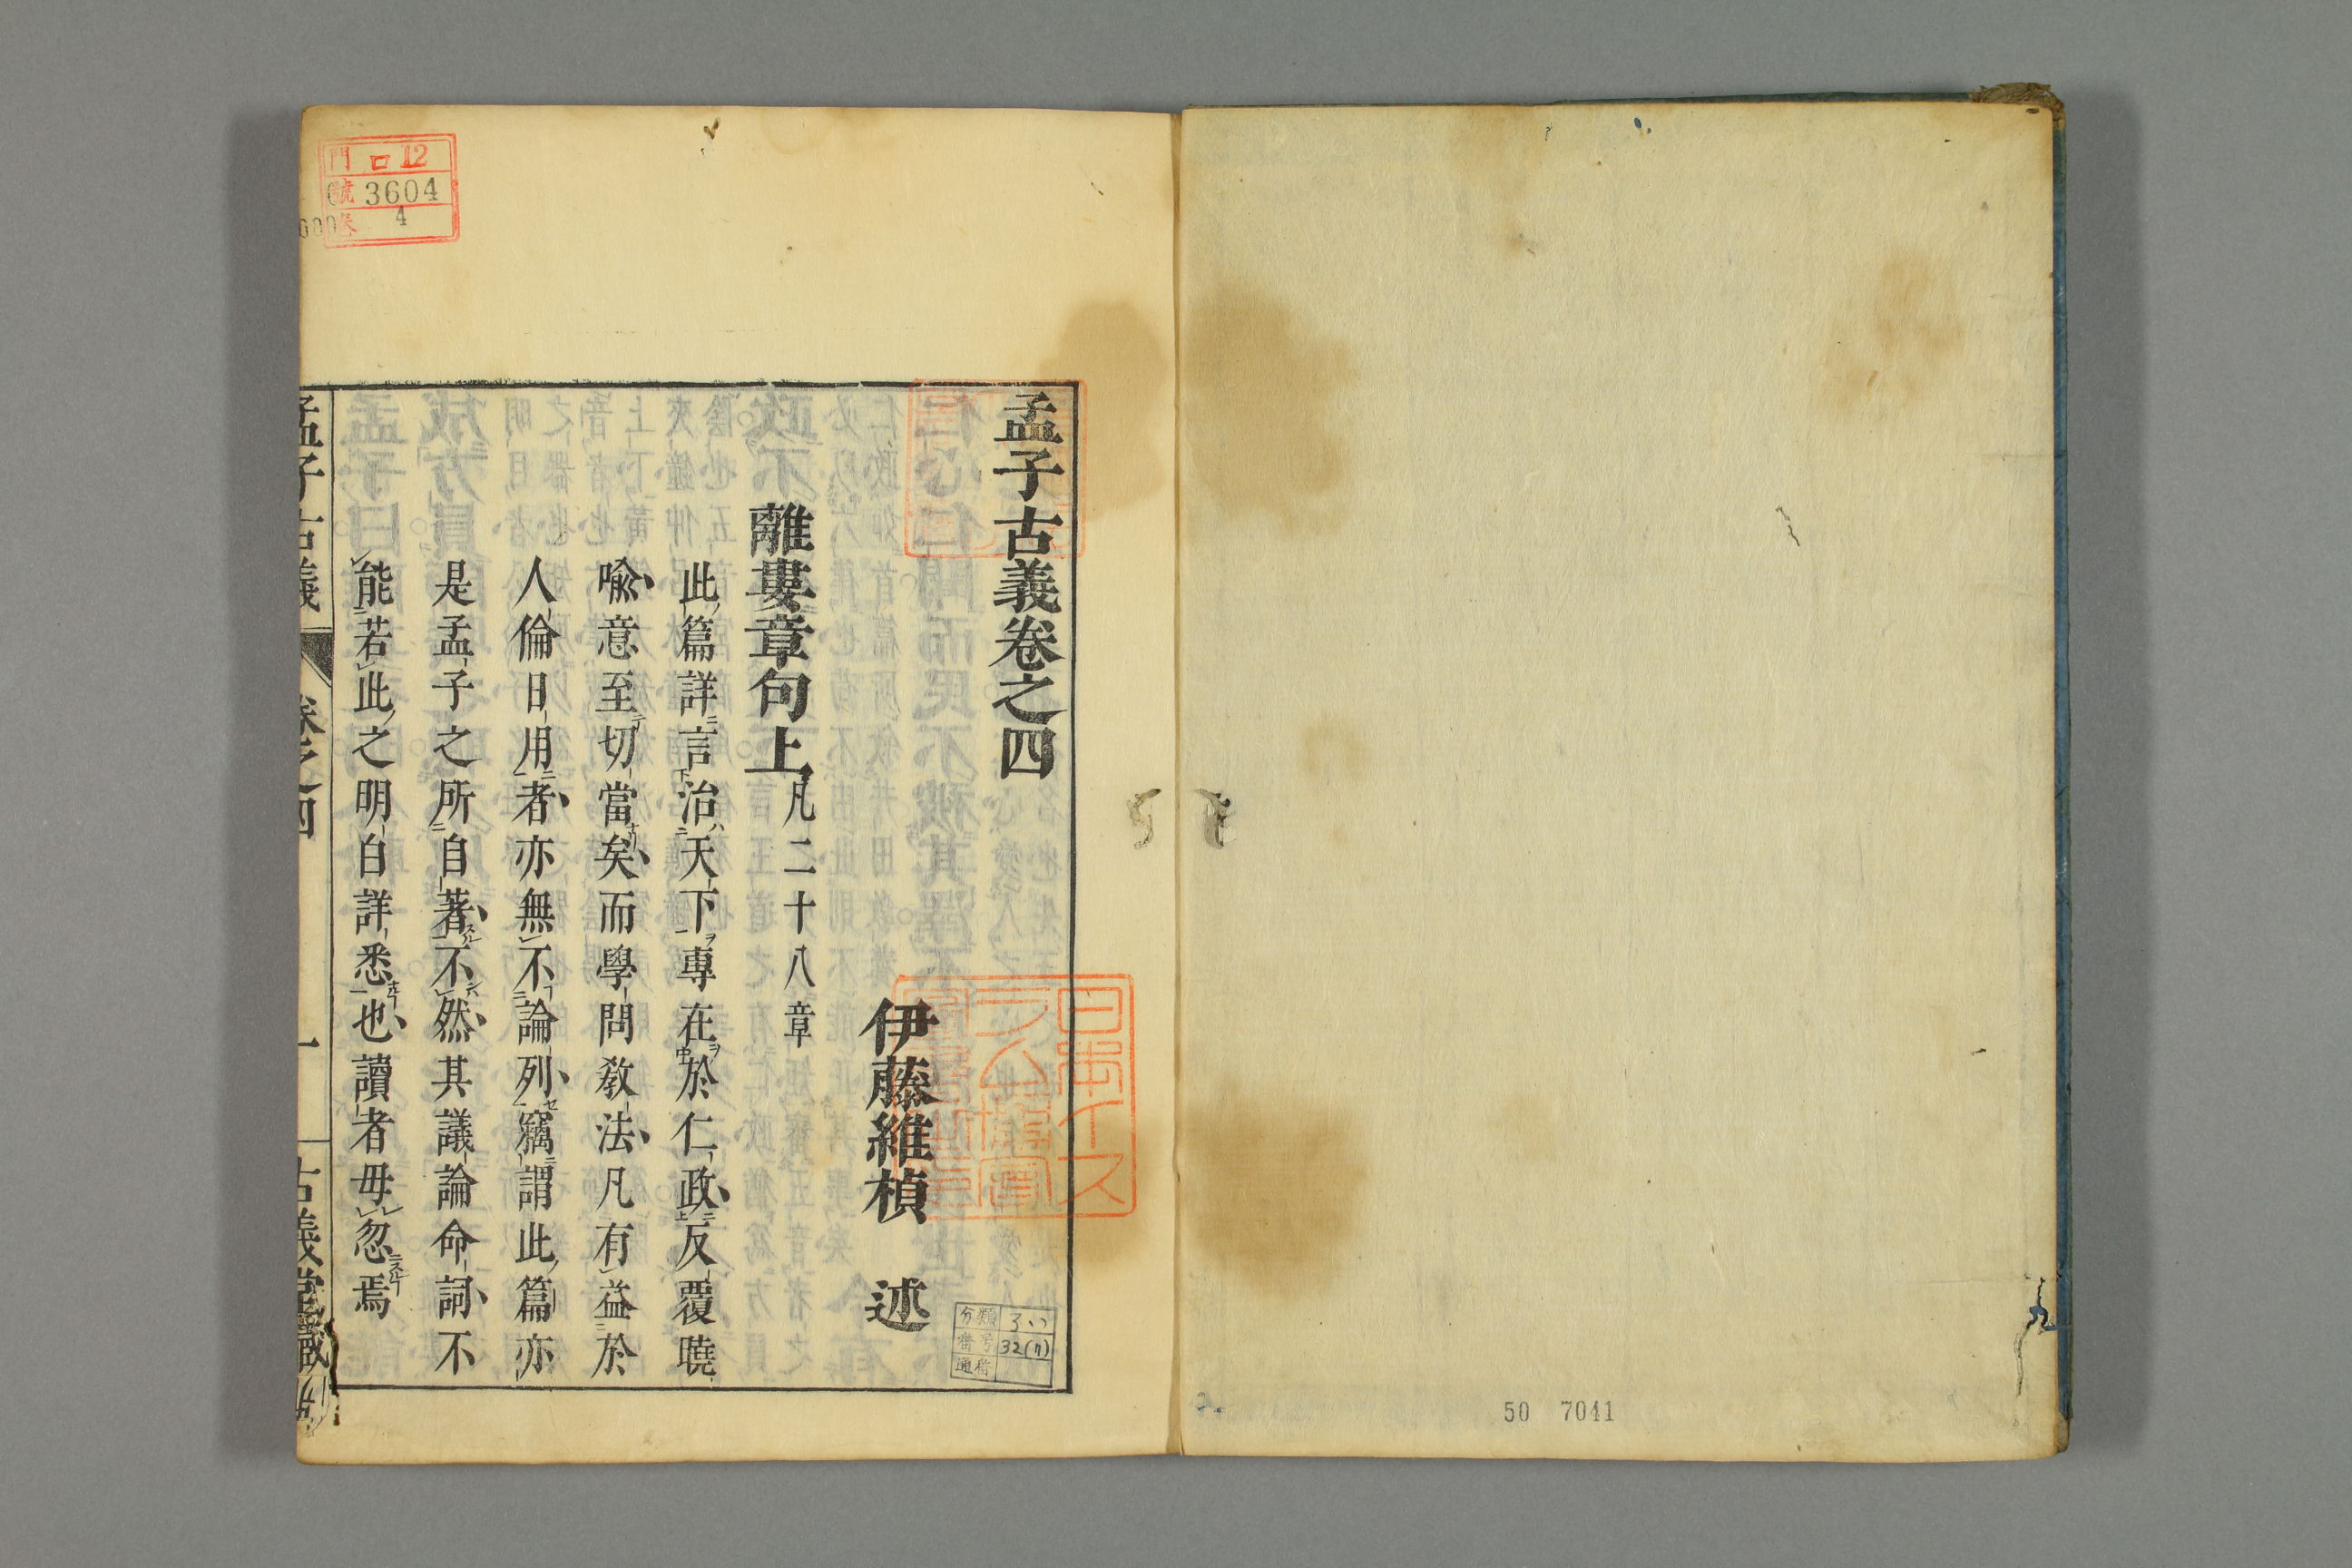 孟子古義卷之四
伊藤維楨　述
離婁章句上凡二十八章
此篇詳言治天下專在於仁政反覆曉
喩意至切當矣而學問敎法凡有益於
人倫日用者亦無不論列竊謂此篇亦
是孟子之所自著不然其議論命詞不
能若此之明白詳悉也讀者毋忽焉
孟子古義　卷之四　一　古義堂藏
門 口12
號 3604
卷 4
分類
番号 32(7)
通番
50 7041